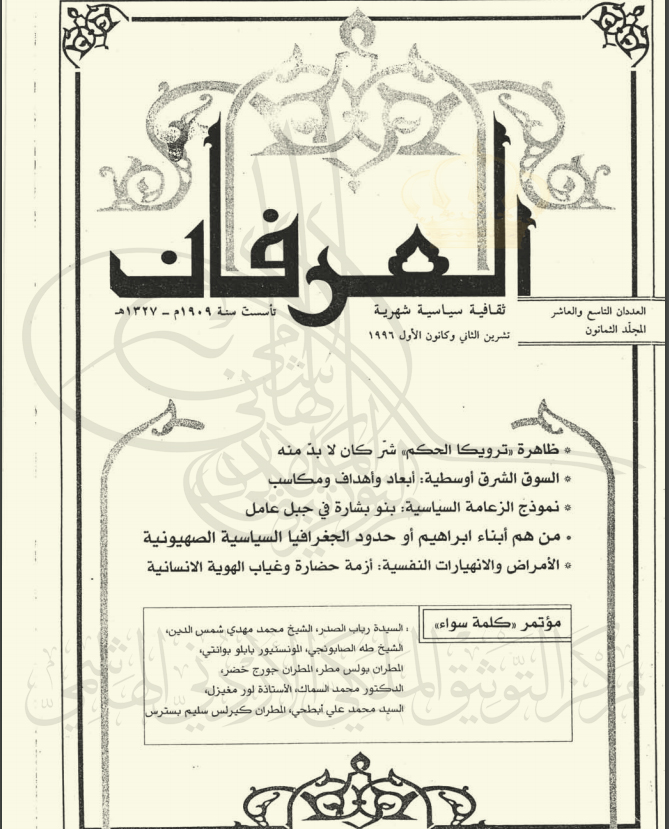 العرفان
العددان التاسع والعاشر
المجلّد الثمانون
ثقافية سياسية شهرية
تأسست سنة ١٩٠٩م - ١٣٢٧هـ
تشرين الثاني وكانون الأول ١٩٩٦
* ظاهرة «ترويكا الحكم» شرّ كان لا بدّ منه
* السوق الشرق أوسطية: أبعاد وأهداف ومكاسب
* نموذج الزعامة السياسية: بنو بشارة في جبل عامل
* من هم أبناء ابراهيم أو حدود الجغرافيا السياسية الصهيونية
* الأمراض والانهيارات النفسية: أزمة حضارة وغياب الهوية الانسانية
مؤتمر «كلمة سواء»
: السيدة رباب الصدر، الشيخ محمد مهدي شمس الدين،
الشيخ طه الصابونجي، المونسنيور بابلو بوانتي،
المطران بولس مطر، المطران جورج خضر،
الدكتور محمد السماك، الأستاذة لور مغيزل،
السيد محمد علي أبطحي، المطران كيرلس سليم بسترس